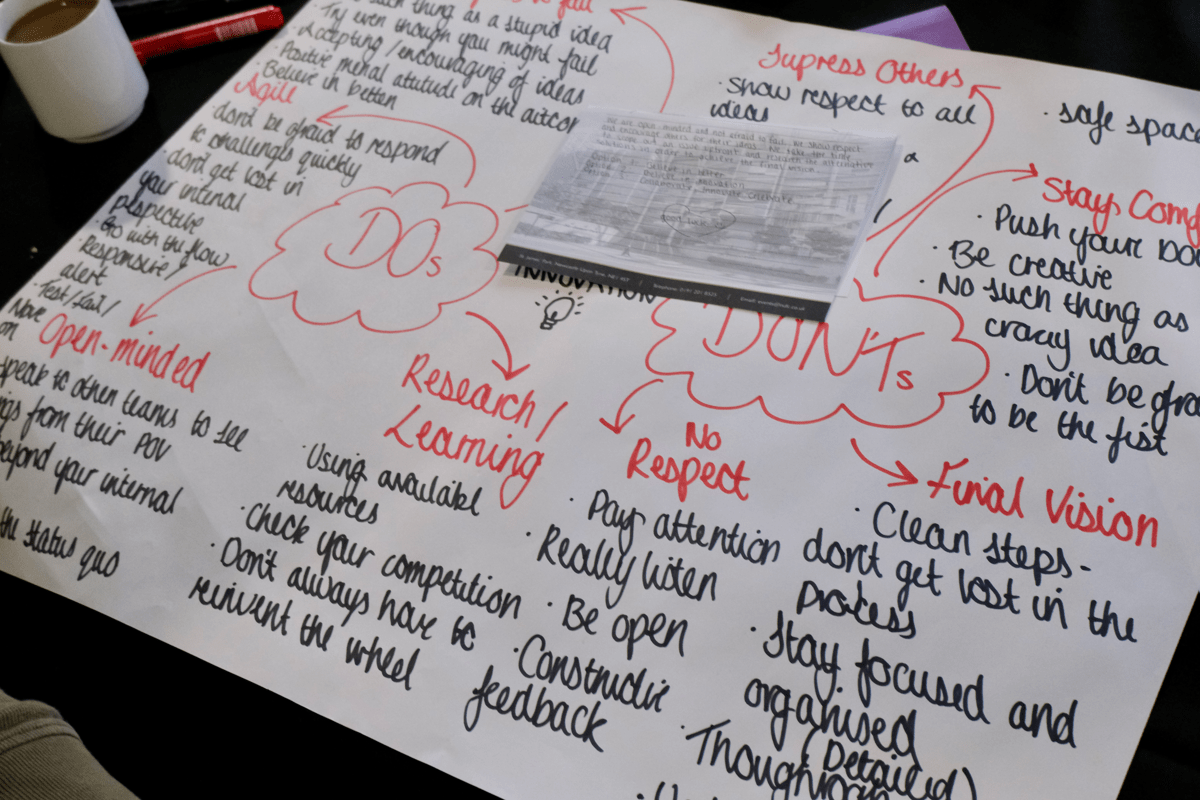 to fail
such thing as a stupid idea
Try even though you might fail
Accepting/encouraging of ideas
Positive mental attitude on the
Believe in better
Agile
don't be afraid to respond
to challenges quickly
don't get lost in
your internal
perspective
Go with the flow
Responsive/
alert
Test/fail/
Move
on
Open-minded
speak to other teams to see
from their POV
beyond your internal
the status quo
DOs
Research/
Learning
Using available
resources
Check your competition
Don't always have to
reinvent the wheel
INNOVATION
Supress Others
Show respect to all
ideas
safe space
DON'Ts
Stay
Push your
Be creative
No such thing as
crazy idea
Don't be
to be the fist
No
Respect
Pay attention
Really listen
Be open
Constructive
feedback
Final Vision
Clean steps-
don't get lost in the
process
Stay focused and
organised
(Detailed)
We are open minded and not afraid to fail. We show respect
and encourage others for their ideas. We take the time
Believe in better